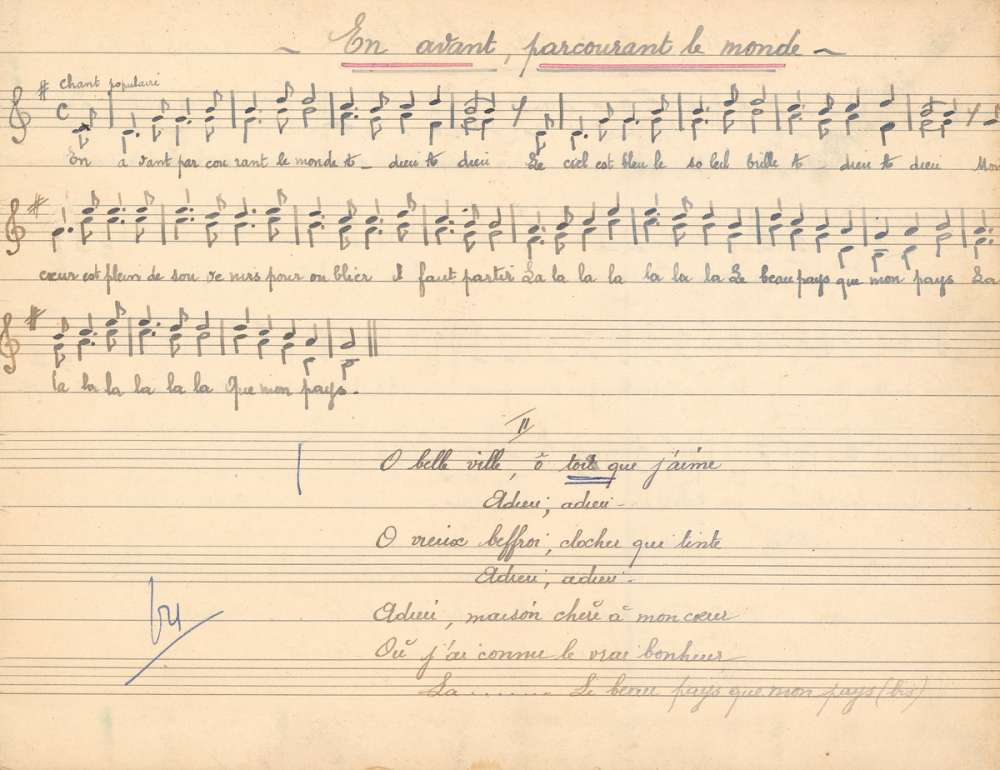 ~ En avant, parcourant le monde ~
Chant populaire
En a vant par cou rant le monde A_ dieu A dieu Le ciel est bleu le so leil brille A dieu A dieu Mon
cœur est plein de sou ve nirs pour ou blier il faut partir La la la la la la la Le beau pays que mon pays La
la la la la la la Que mon pays.
II
O belle ville, ô toit que j'aime
Adieu, adieu -
O vieux beffroi, clocher qui tinte
Adieu, adieu -
Adieu, maison chère à mon cœur
Où j'ai connu le vrai bonheur
La ......... Le beau pays que mon pays (bis)